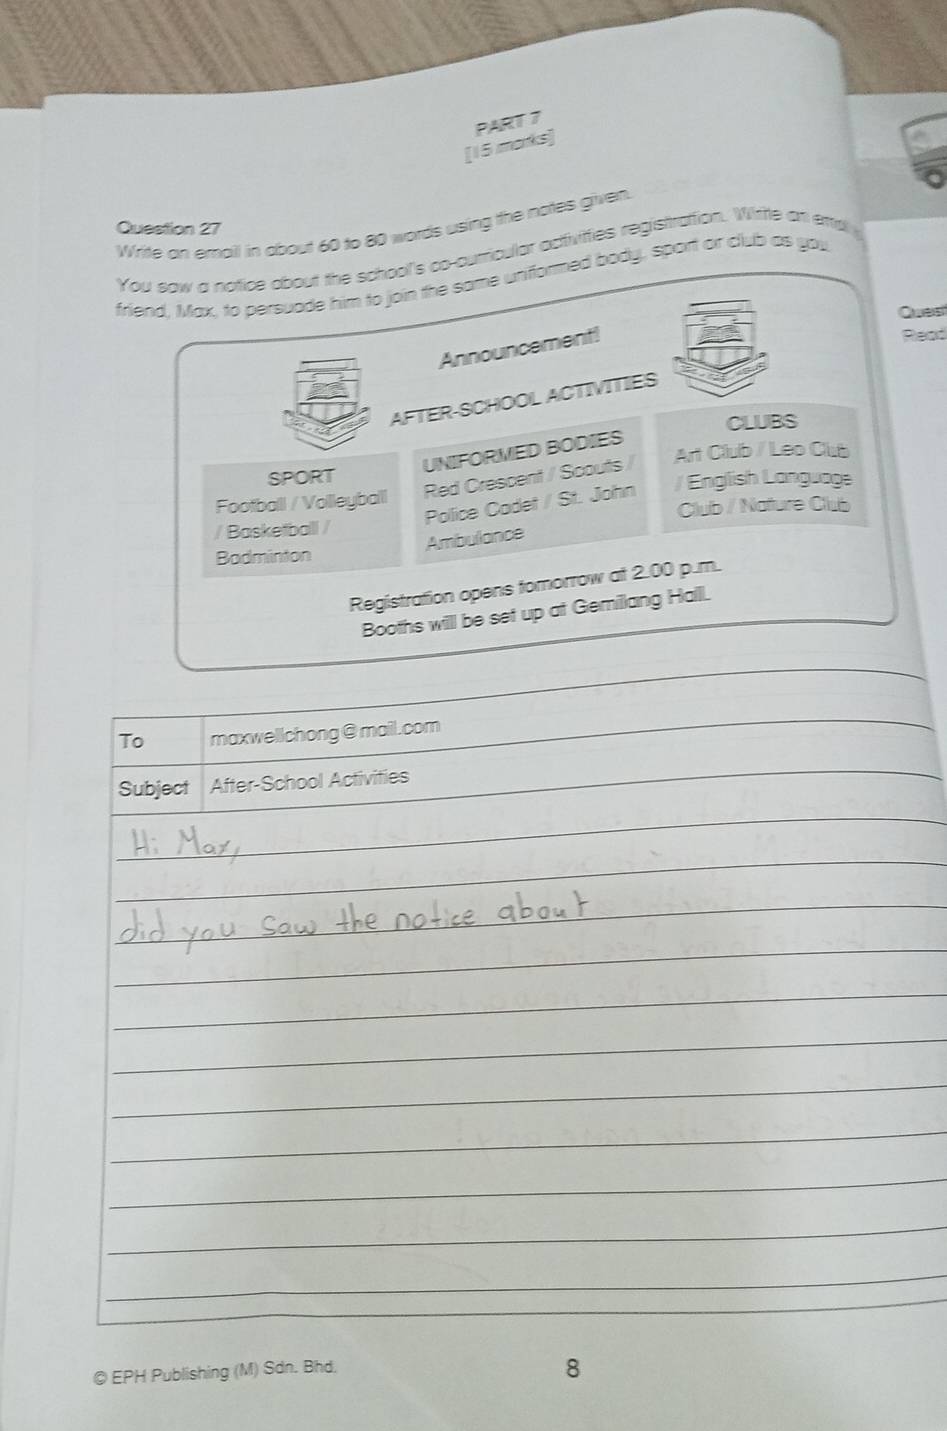 PART 7
[15 marks]
Question 27
Write an email in about 60 to 80 words using the notes given.
You saw a notice about the school's co-curricular activities registration. Write an email
friend, Max, to persuade him to join the same uniformed body, sport or club as you.
Quest
Read
Announcement!
AFTER-SCHOOL ACTIVITIES
SPORT
Football / Volleyball
/ Basketball /
Badminton
UNIFORMED BODIES
Red Crescent / Scouts /
Police Cadet / St. John
Ambulance
CLUBS
Art Club / Leo Club
/ English Language
Club / Nature Club
Registration opens tomorrow at 2.00 p.m.
Booths will be set up at Gemilang Hall.
To maxwellchong@mail.com
Subject After-School Activities
Hi Max,
did you saw the notice about
© EPH Publishing (M) Sdn. Bhd.
8